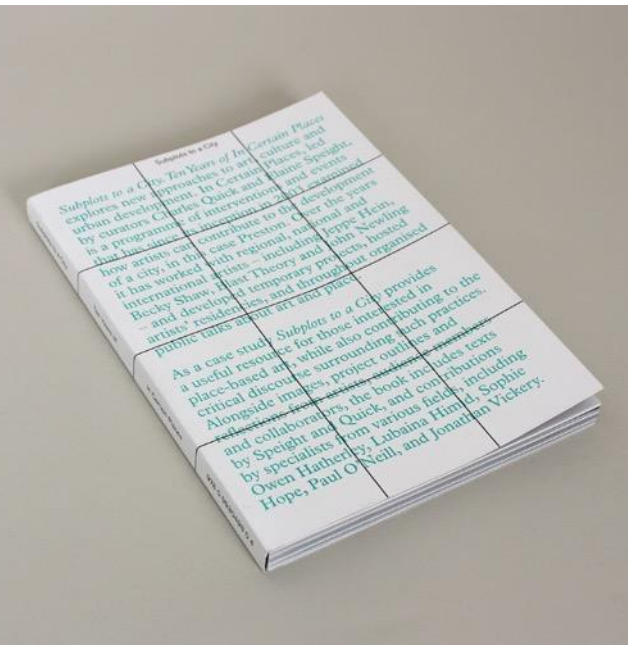 Subplots to a City
Subplots to a City. Ten Years of In Certain Places
explores new approaches to art, culture and
urban development. In Certain Places, led
by curators Charles Quick and Elaine Speight,
is a programme of interventions and events
that has since its inception in 2003 examined
how artists can contribute to the development
of a city, in this case Preston. Over the years
it has worked with regional, national and
international artists – including Jeppe Hein,
Becky Shaw, Theory and John Newling
– and developed temporary projects, hosted
artists' residencies, and throughout organised
public talks about art and place.
As a case study Subplots to a City provides
a useful resource for those interested in
place-based art, while also contributing to the
critical discourse surrounding such practices.
Alongside images, project outlines and
reflections from artists,
and collaborators, the book includes texts
by Speight and Quick, and contributions
by specialists from various fields, including
Owen Hatherley, Lubaina Himid, Sophie
Hope, Paul O'Neill, and Jonathan Vickery.